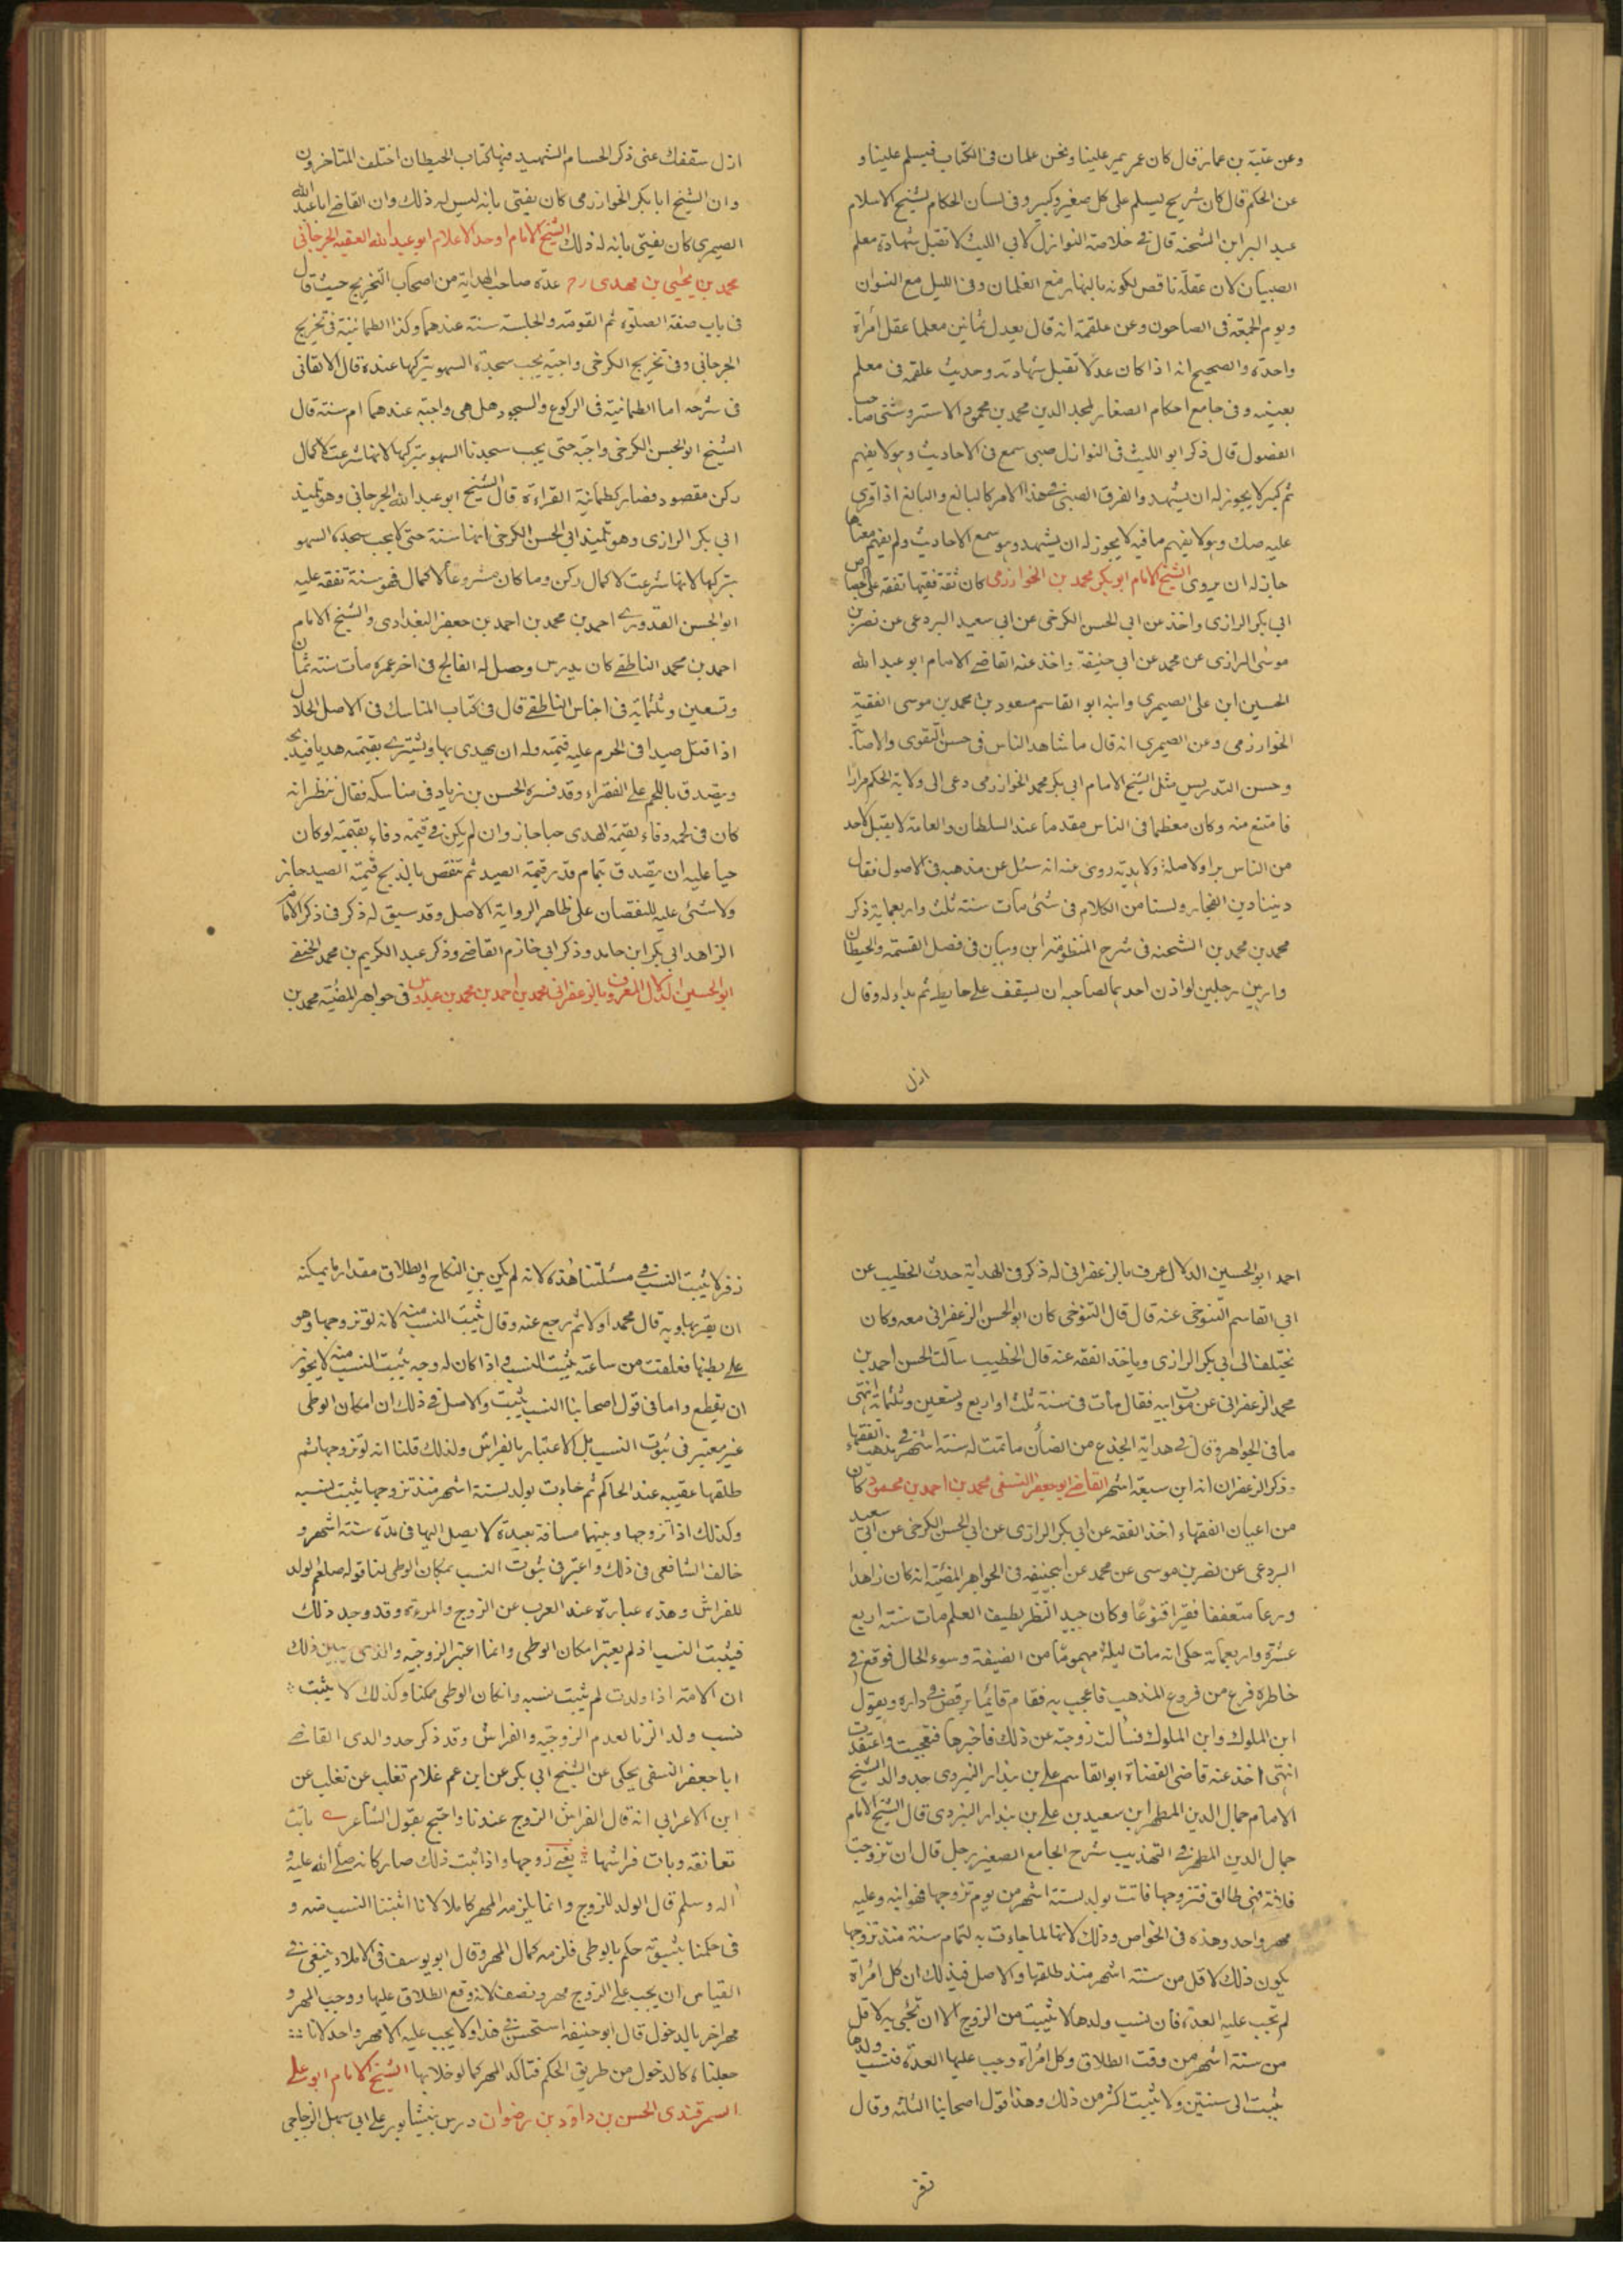 وعن عتبة بن عمار قال كان عمر يمر علينا ونحن غلمان فى الكتاب فيسلم علينا و
عن الحكم قال كان شريح يسلم على كل صغير وكبير وفى لسان الحكام لشيخ الاسلام
عبد البر ابن الشحنه قال فى خلاصة النوازل لابي الليث لا تقبل شهادة معلم
الصبيان لان عقله ناقص لكونه بالنهار مع الغلمان وفى الليل مع النسوان
ويوم الجمعة فى الصاحون وعن علقمة انه قال يعدل ثمانين معلما عقل امرأة
واحدة والصحيح انه اذا كان عدلا تقبل شهادته وحديث علقمه فى معلم
بعينه وفى جامع احكام الصغار لمجد الدين محمد بن محمود الاستروشنى صاحب
الفصول قال ذكر ابو الليث فى النوازل صبى سمع فى الاحاديث وهو لا يفهم
ثم كبر لا يجوز له ان يشهد والفرق الصبى فى هذا الامر كالبالغ والبالغ اذا قرى
عليه صك وهو لا يفهم ما فيه لا يجوز له ان يشهد وهو سمع الاحاديث ولم يفهم معناها
جاز له ان يروى الشيخ الامام ابو بكر محمد بن الخوارزمى كان ثقة فقيها تفقه على الجصاص
ابي بكر الرازى واخذ عن ابي الحسن الكرخى عن ابي سعيد البردعى عن نصر بن
موسى الرازى عن محمد عن ابي حنيفة واخذ عنه القاضے الامام ابو عبد الله
الحسين ابن على الصيمرى وابنه ابو القاسم مسعود بن محمد بن موسى الفقيه
الخوارزمى وعن الصيمرى انه قال ما شاهد الناس فى حسن التقوى والاصابة
وحسن التدريس مثل الشيخ الامام ابى بكر محمد الخوارزمى دعى الى ولاية الحكم مرارا
فامتنع منه وكان معظما فى الناس مقدما عند السلطان والعامة لا يقبل لاحد
من الناس برا ولا صلة ولا هدية روى عنه انه سئل عن مذهبه فى الاصول فقال
ديننا دين العجائز ولسنا من الكلام فى شئى مات سنة ثلث واربعماية ذكر
محمد بن محمد بن الشحنه فى شرح المنظومة ابن وهبان فى فصل القسمة والحيطان
دار بين رجلين لو اذن احدهما لصاحبه ان يسقف على حايطه ثم بدا له وقال
ازل
ازل سقفك عنى ذكر الحسام الشهيد فيها كتاب الحيطان اختلف المتاخرون
وان الشيخ ابا بكر الخوارزمى كان يفتى بانه ليس له ذلك وان القاضے ابا عبد الله
الصيمرى كان يفتى بانه له ذلك الشيخ الامام اوحد الاعلام ابو عبد الله الفقيه الجرجانى
محمد بن يحيى بن مهدى رح عده صاحب الهداية من اصحاب التخريج حيث قال
فى باب صفة الصلوة ثم القومة والجلسة سنة عندهما وكذا الطمانينة فى تخريج
الجرجانى وفى تخريج الكرخى واجبة يجب سجدة السهو بتركها عنده قال الاتقانى
فى شرحه اما الطمانينة فى الركوع والسجود هل هى واجبة عندهما ام سنة قال
الشيخ ابو الحسن الكرخى واجبة حتى يجب سجدتا السهو بتركها لانها شرعت لاكمال
ركن مقصود فصار كطمانية القراءة قال الشيخ ابو عبد الله الجرجانى وهو تلميذ
ابى بكر الرازى وهو تلميذ ابى الحسن الكرخى انها سنة حتى لا يجب سجدة السهو
بتركها لانها شرعت لاكمال ركن وما كان مشروعا لاكمال فهو سنة تفقه عليه
ابو الحسن القدورے احمد بن محمد بن احمد بن جعفر البغدادى والشيخ الامام
احمد بن محمد الناطفے كان يدرس وحصل له الفالج فى اخر عمره مات سنة ثمان
وتسعين وثلثماية فى اجناس الناطفے قال فى كتاب المناسك فى الاصل الحلال
اذا قتل صيدا فى الحرم عليه قيمته وله ان يهدى بها ويشترے بقيمته هديا فيذبحه
ويتصدق باللحم على الفقراء وقد فسره الحسن بن زياد فى مناسكه فقال ننظر انه
كان فى لحمه وفاء بقيمة الهدى حيا جاز وان لم يكن فى قيمته وفاء بقيمته لو كان
حيا عليه ان يتصدق بتمام قدر قيمة الصيد ثم تنقص بالذبح قيمته الصيد جايز
ولا شئى عليه للنقصان على ظاهر الرواية الاصل وقد سبق له ذكر فى ذكر الامام
الزاهد ابى بكر ابن حامد وذكر ابى خازم القاضے وذكر عبد الكريم بن محمد الحنفے
ابو الحسين الدلال المعروف بالزعفرانى محمد بن احمد بن محمد بن عبدوس فى جواهر المضية محمد بن
احمد ابو الحسين الدلال عرف بالزعفرانى له ذكر فى الهداية حدث الخطيب عن
ابى القاسم التنوخى عنه قال قال التنوخى كان ابو الحسن الزعفرانى معه وكان
يختلف الى ابى بكر الرازى وياخذ الفقه عنه قال الخطيب سألت الحسن احمد بن
محمد الزعفرانى عن موت ابيه فقال مات فى سنة ثلث او اربع وتسعين وثلثماية انتهى
ما فى الجواهر وقال فى هداية الجذع من الضأن ما تمت له ستة اشهر فى مذهب الفقهاء
وذكر الزعفران انه ابن سبعة اشهر القاضے ابو جعفر النسفى محمد بن احمد بن محمود كان
من اعيان الفقهاء اخذ الفقه عن ابى بكر الرازى عن ابى الحسن الكرخى عن ابى سعيد
البردعى عن نصر بن موسى عن محمد عن ابيحنيفه فى الجواهر المضئية انه كان زاهدا
ورعا متعففا فقيرا قنوعا وكان جيد النظر لطيف العلم مات سنة اربع
عشرة واربعماية حكى انه مات ليلة مهموما من الضيقة وسوء الحال فوقع فى
خاطره فرع من فروع المذهب فاعجب به فقام قائما يرقص فى داره ويقول
ابن الملوك وابن الملوك فسألت زوجته عن ذلك فاخبرها فتعجبت واعتقدت
انتهى اخذ عنه قاضى القضاة ابو القاسم على بن بندار اليزدى جد والد الشيخ
الامام جمال الدين المطهر ابن سعيد بن على بن بندار اليزدى قال الشيخ الامام
جمال الدين المطهر فى التهذيب شرح الجامع الصغير رجل قال ان تزوجت
فلانة فهى طالق فتزوجها فاتت بولد لستة اشهر من يوم تزوجها فهو ابنه وعليه
مهر واحد وهذه فى الخواص وذلك لانها لما جاءت به لتمام ستة منذ تزوجها
يكون ذلك لاقل من ستة اشهر منذ طلقها والاصل فيذلك ان كل امرأة
لم تجب عليه العدة فان نسب ولدها لا يثبت من الزوج الا ان تجئى به لاقل
من ستة اشهر من وقت الطلاق وكل امرأة وجب عليها العدة فنسب ولدها
يثبت الى سنتين ولا يثبت اكثر من ذلك وهذا قول اصحابنا الثلثه وقال
زفر
زفر لا يثبت النسب فى مسئلتنا هذه لانه لم يكن بين النكاح والطلاق مقدار ما يمكنه
ان يقربها وبه قال محمد اولا ثم رجع عنه وقال يثبت النسب منه لانه لو تزوجها وهو
على بطنها فعلقت من ساعته يثبت النسب واذا كان له وجه يثبت النسب منه لا يجوز
ان يقطع واما فى قول اصحابنا النسب يثبت والاصل فى ذلك ان امكان الوطى
غير معتبر فى ثبوت النسب بل الاعتبار بالفراش ولذلك قلنا انه لو تزوجها ثم
طلقها عقيبه عند الحاكم ثم جاءت بولد لستة اشهر منذ تزوجها يثبت نسبه
وكذلك اذا تزوجها وبينهما مسافة بعيدة لا يصل اليها فى مدة ستة اشهر و
خالف الشافعى فى ذلك واعتبر فى ثبوت النسب بمكان الوطى لنا قوله صلعم الولد
للفراش وهذه عبارة عند العرب عن الزوج والمرءة وقد وجد ذلك
فيثبت النسب اذ لم يعتبر امكان الوطى وانما اعتبر الزوجية والذى يبين ذلك
ان الامة اذا ولدت لم يثبت نسبه وان كان الوطى ممكنا وكذلك لا يثبت
نسب ولد الزنا لعدم الزوجية والفراش وقد ذكر جد والدى القاضے
ابا جعفر النسفى يحكى عن الشيخ ابى بكر عن ابن عم غلام ثعلب عن ثعلب عن
ابن الاعرابى انه قال الفراش الزوج عندنا واحتج بقول الشاعر ے باتت
تعانقه وبات فراشها يعنے زوجها واذا ثبت ذلك صار كانه صلى الله عليه و
آله وسلم قال الولد للزوج وانما يلزمه المهر كاملا لانا اثبتنا النسب منه و
فى حكمنا بثبوته حكم بالوطى فلزمه كمال المهر وقال ابو يوسف فى الاملاء ينبغى فى
القياس ان يجب على الزوج مهر ونصف لانه وقع الطلاق عليها ووجب المهر و
مهر اخر بالدخول قال ابو حنيفه استحسن فى هذا ولا يجب عليه الا مهر واحد لانا
جعلناه كالدخول من طريق الحكم فتاكد المهر كما لو خلا بها الشيخ الامام ابو على
السمرقندى الحسن بن داود بن رضوان درس بنيشابور على ابى سهل الزجاجى